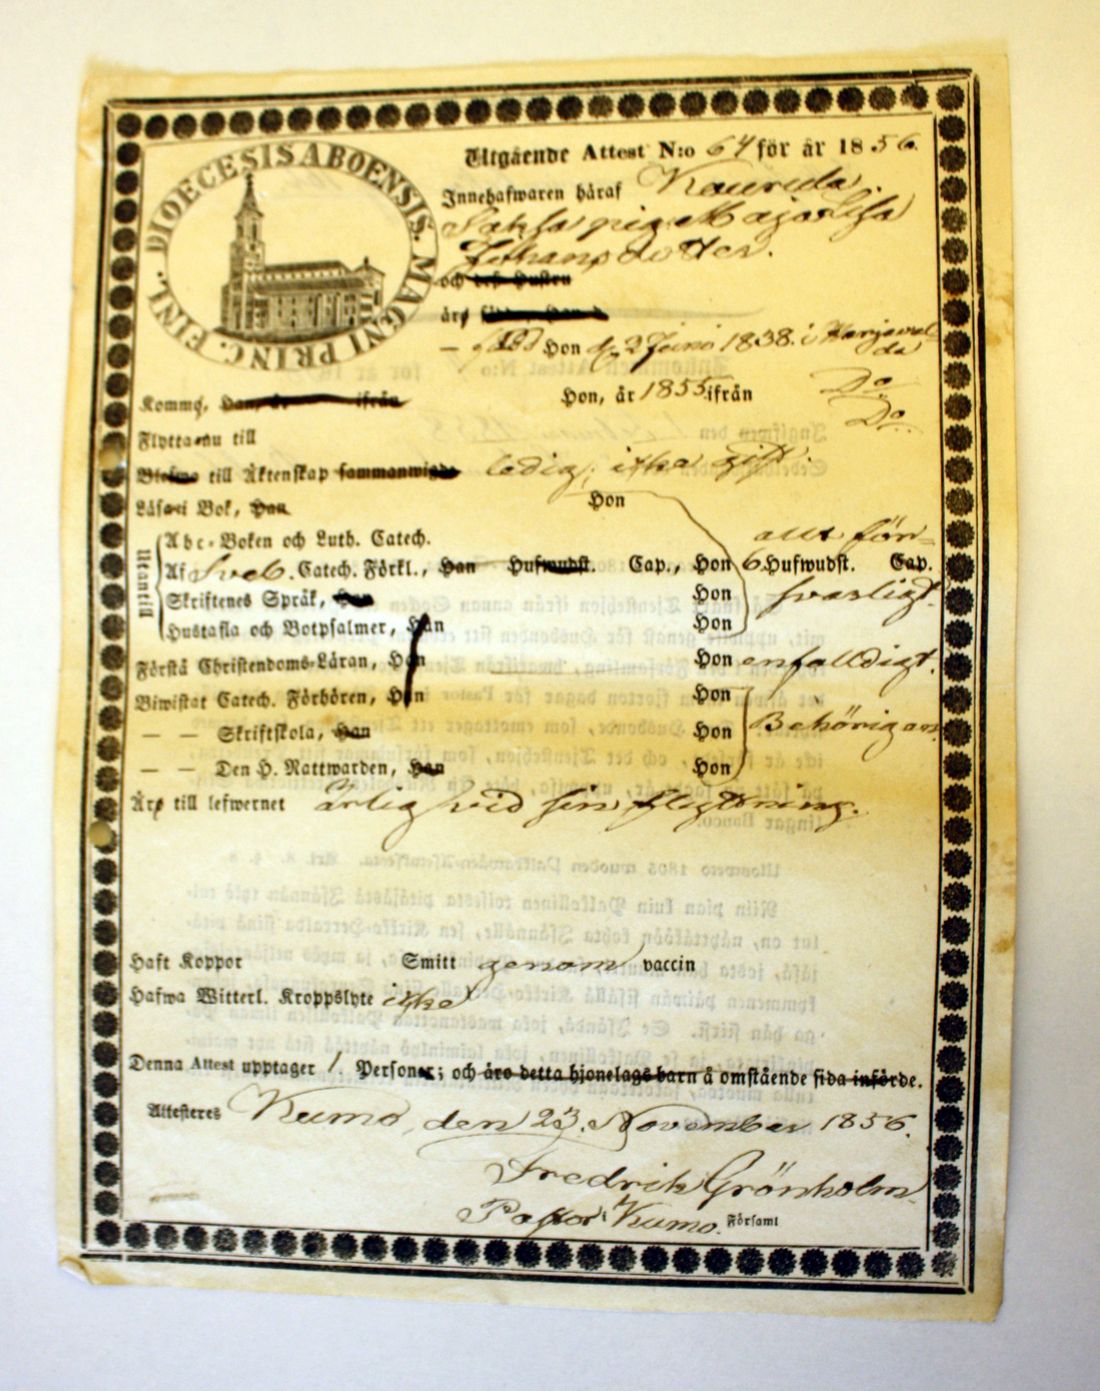 DIOECESIS ABOENSIS. MAGNI PRINC. FINL.
Utgående Attest N:o 64 för år 1856.
Innehafwaren häraf
pig Maja Lisa
Johansdotter.
och dess Hustru
äro
född Hon d. 2 Juni 1838. i Harjaval-
da
Komme, Han, år ifrån Hon, år 1855 ifrån Do
Flytta nu till Do
Blefwo till Äktenskap sammanwigde ledig, icke gift.
Läsa i Bok, Han Hon
Utantill
Abc-Boken och Luth. Catech. all för-
Af Sveb. Catech. Förkl., Han Hufwudst. Cap., Hon 6 Hufwudst. Cap.
Skriftenes Språk, Han Hon svarligt.
Hustafla och Botpsalmer, Han Hon
Förstå Christendoms-Läran, Han Hon enfalldigt.
Biwistat Catech. Förhören, Han Hon
— — Skriftskola, Han Hon Behörigen.
— — Den H. Nattwarden, Han Hon
Äro till lefwernet Ärlig vid sin flyttning.
Haft Koppor Smitt genom vaccin
Hafwa Witterl. Kroppslyte icke
Denna Attest upptager 1. Personer; och äro detta hjonelags barn å omstående sida införde.
Attesteres Kumo, den 23. November 1856.
Fredrik Grönholm
Pastor i Kumo. Församl